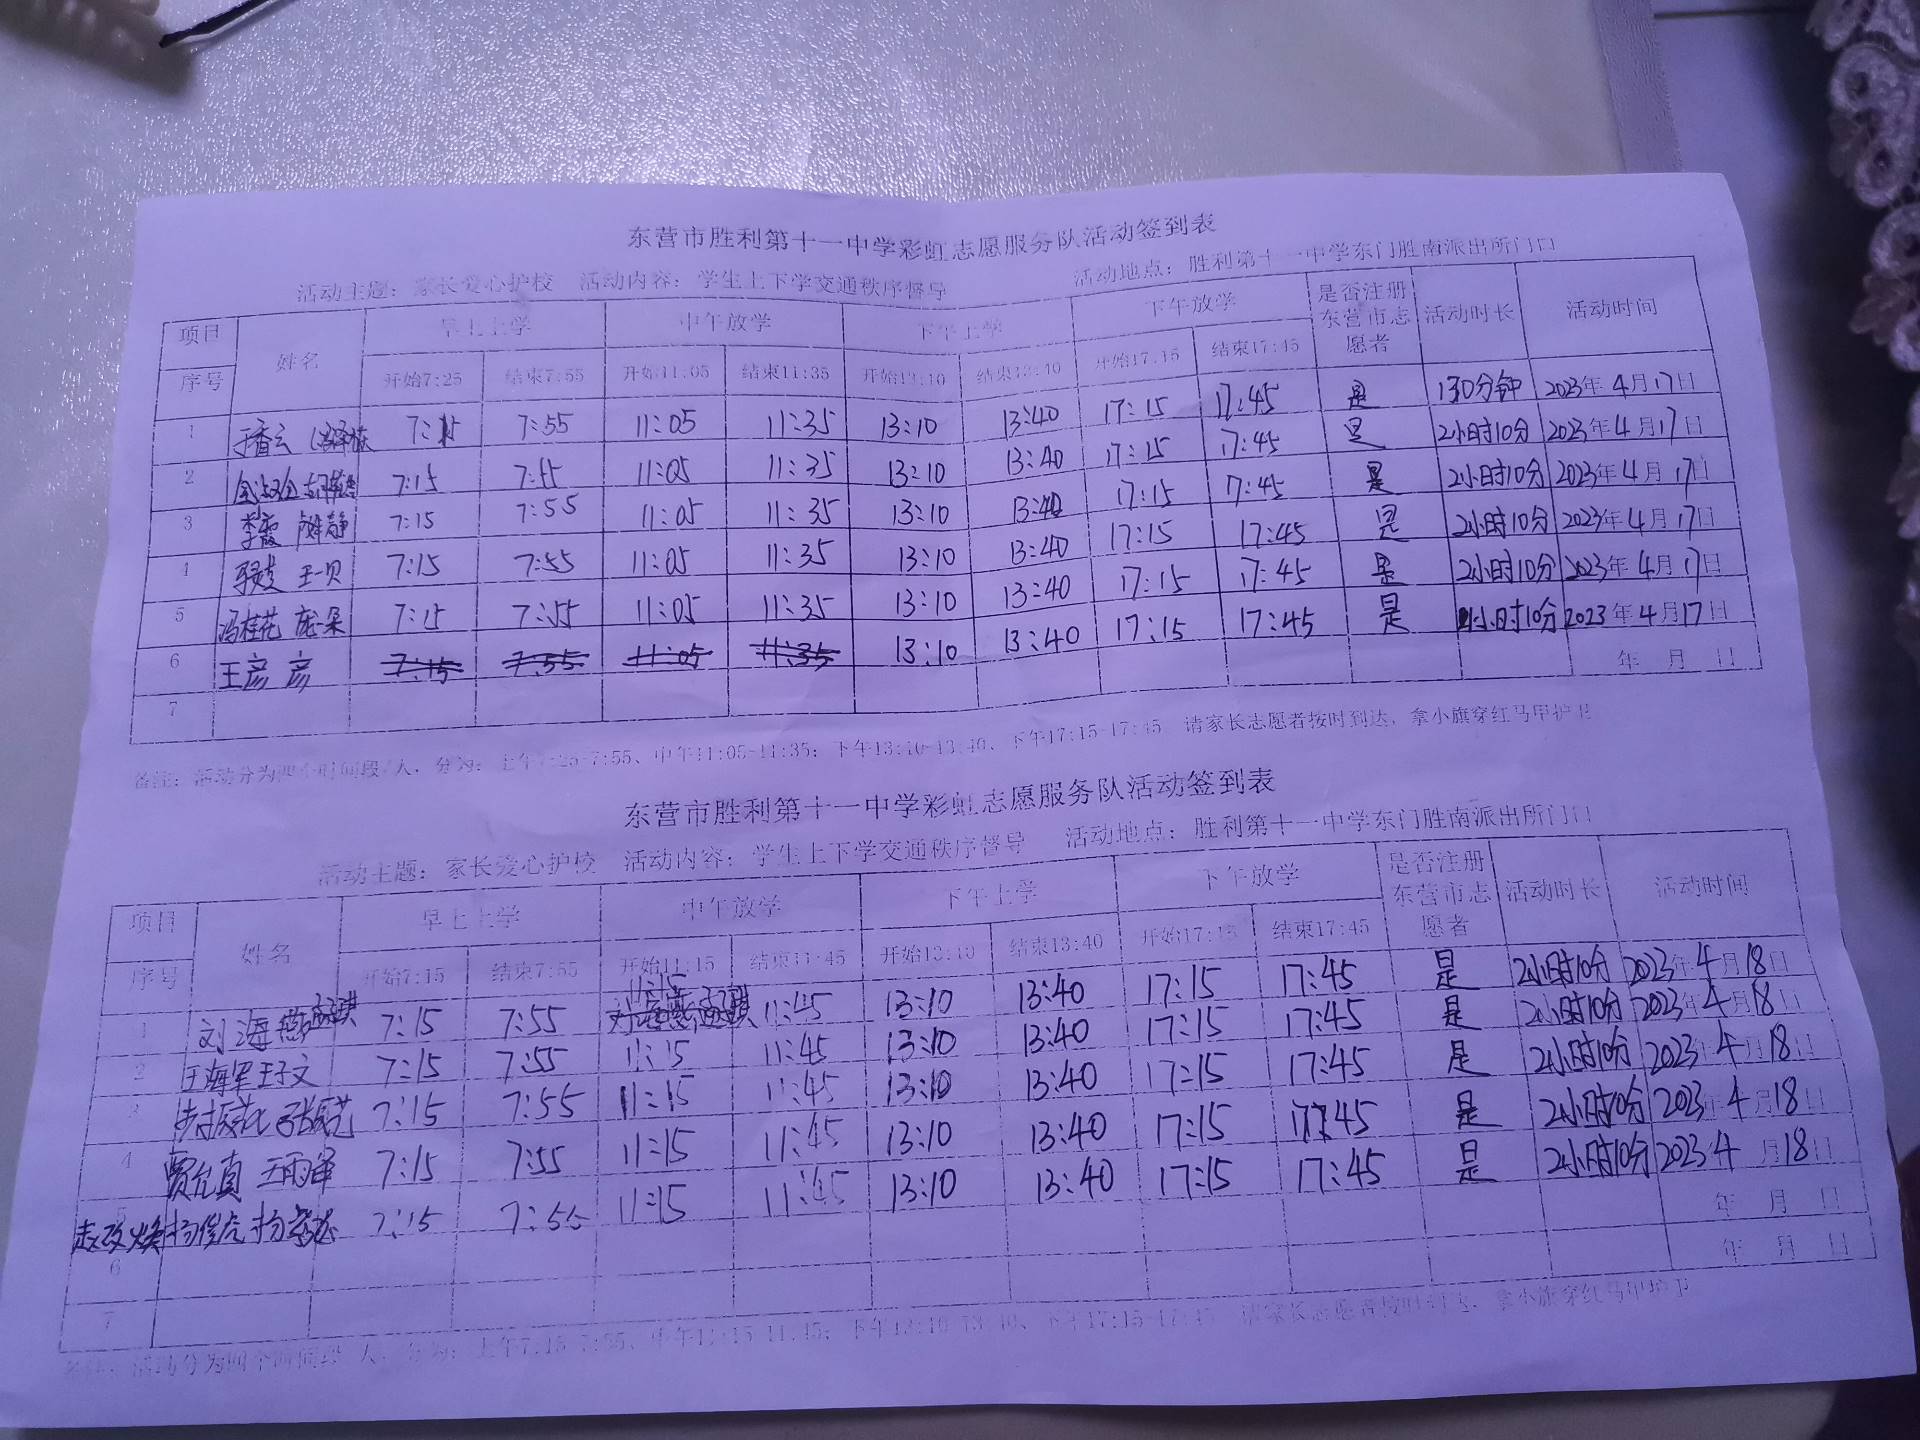 东营市胜利第十一中学彩虹志愿服务队活动签到表
活动主题：家长爱心护校 活动内容：学生上下学交通秩序督导 活动地点：胜利第十一中学东门胜南派出所门口
项目 姓名 早上上学 中午放学 下午上学 下午放学 是否注册东营市志愿者 活动时长 活动时间
序号 开始7:25 结束7:55 开始11:05 结束11:35 开始13:10 结束13:40 开始17:15 结束17:45
1 于香云 7:15 7:55 11:05 11:35 13:10 13:40 17:15 17:45 是 130分钟 2023年4月17日
2 7:15 7:55 11:05 11:35 13:10 13:40 17:15 17:45 是 2小时10分 2023年4月17日
3 李霞 7:15 7:55 11:05 11:35 13:10 13:40 17:15 17:45 是 2小时10分 2023年4月17日
4 王一贝 7:15 7:55 11:05 11:35 13:10 13:40 17:15 17:45 是 2小时10分 2023年4月17日
5 冯桂花 庞一朵 7:15 7:55 11:05 11:35 13:10 13:40 17:15 17:45 是 2小时10分 2023年4月17日
6 王彦彦 7:15 7:55 11:05 11:35 13:10 13:40 17:15 17:45 是 小时10分 2023年4月17日
7 年 月 日
备注：活动分为四个时间段 人，分为：上午7:25-7:55、中午11:05-11:35；下午13:10-13:40、下午17:15-17:45 请家长志愿者按时到达，拿小旗穿红马甲护
东营市胜利第十一中学彩虹志愿服务队活动签到表
活动主题：家长爱心护校 活动内容：学生上下学交通秩序督导 活动地点：胜利第十一中学东门胜南派出所门口
项目 姓名 早上上学 中午放学 下午上学 下午放学 是否注册东营市志愿者 活动时长 活动时间
序号 开始7:15 结束7:55 开始11:15 结束11:45 开始13:10 结束13:40 开始17:15 结束17:45
1 刘海燕 7:15 7:55 11:15 11:45 13:10 13:40 17:15 17:45 是 2小时10分 2023年4月18日
2 王海军 王子文 7:15 7:55 11:15 11:45 13:10 13:40 17:15 17:45 是 2小时10分 2023年4月18日
3 7:15 7:55 11:15 11:45 13:10 13:40 17:15 17:45 是 2小时10分 2023年4月18日
4 贾允真 王雨泽 7:15 7:55 11:15 11:45 13:10 13:40 17:15 17:45 是 2小时10分 2023年4月18日
5 7:15 7:55 11:15 11:45 13:10 13:40 17:15 17:45 是 2小时10分 2023 4月18日
6 年 月 日
7 年 月 日
备注：活动分为四个时间段 人，分为：上午7:15-7:55、中午11:15-11:45；下午13:10-13:40、下午17:15-17:45 请家长志愿者按时到达，拿小旗穿红马甲护